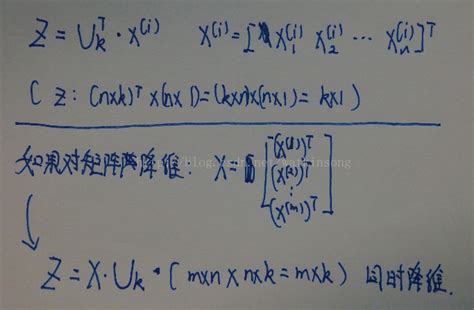 Z = U_k^T · x^(i)   x^(i) = [x_1^(i) x_2^(i) ⋯ x_n^(i)]^T
( Z: (n×k)^T × (n×1) = (k×n)×(n×1) = k×1 )
如果对矩阵降维: X = [(x^(1))^T
(x^(2))^T
⋮
(x^(m))^T]
↓
Z = X · U_k · ( m×n × n×k = m×k ) 同时降维.